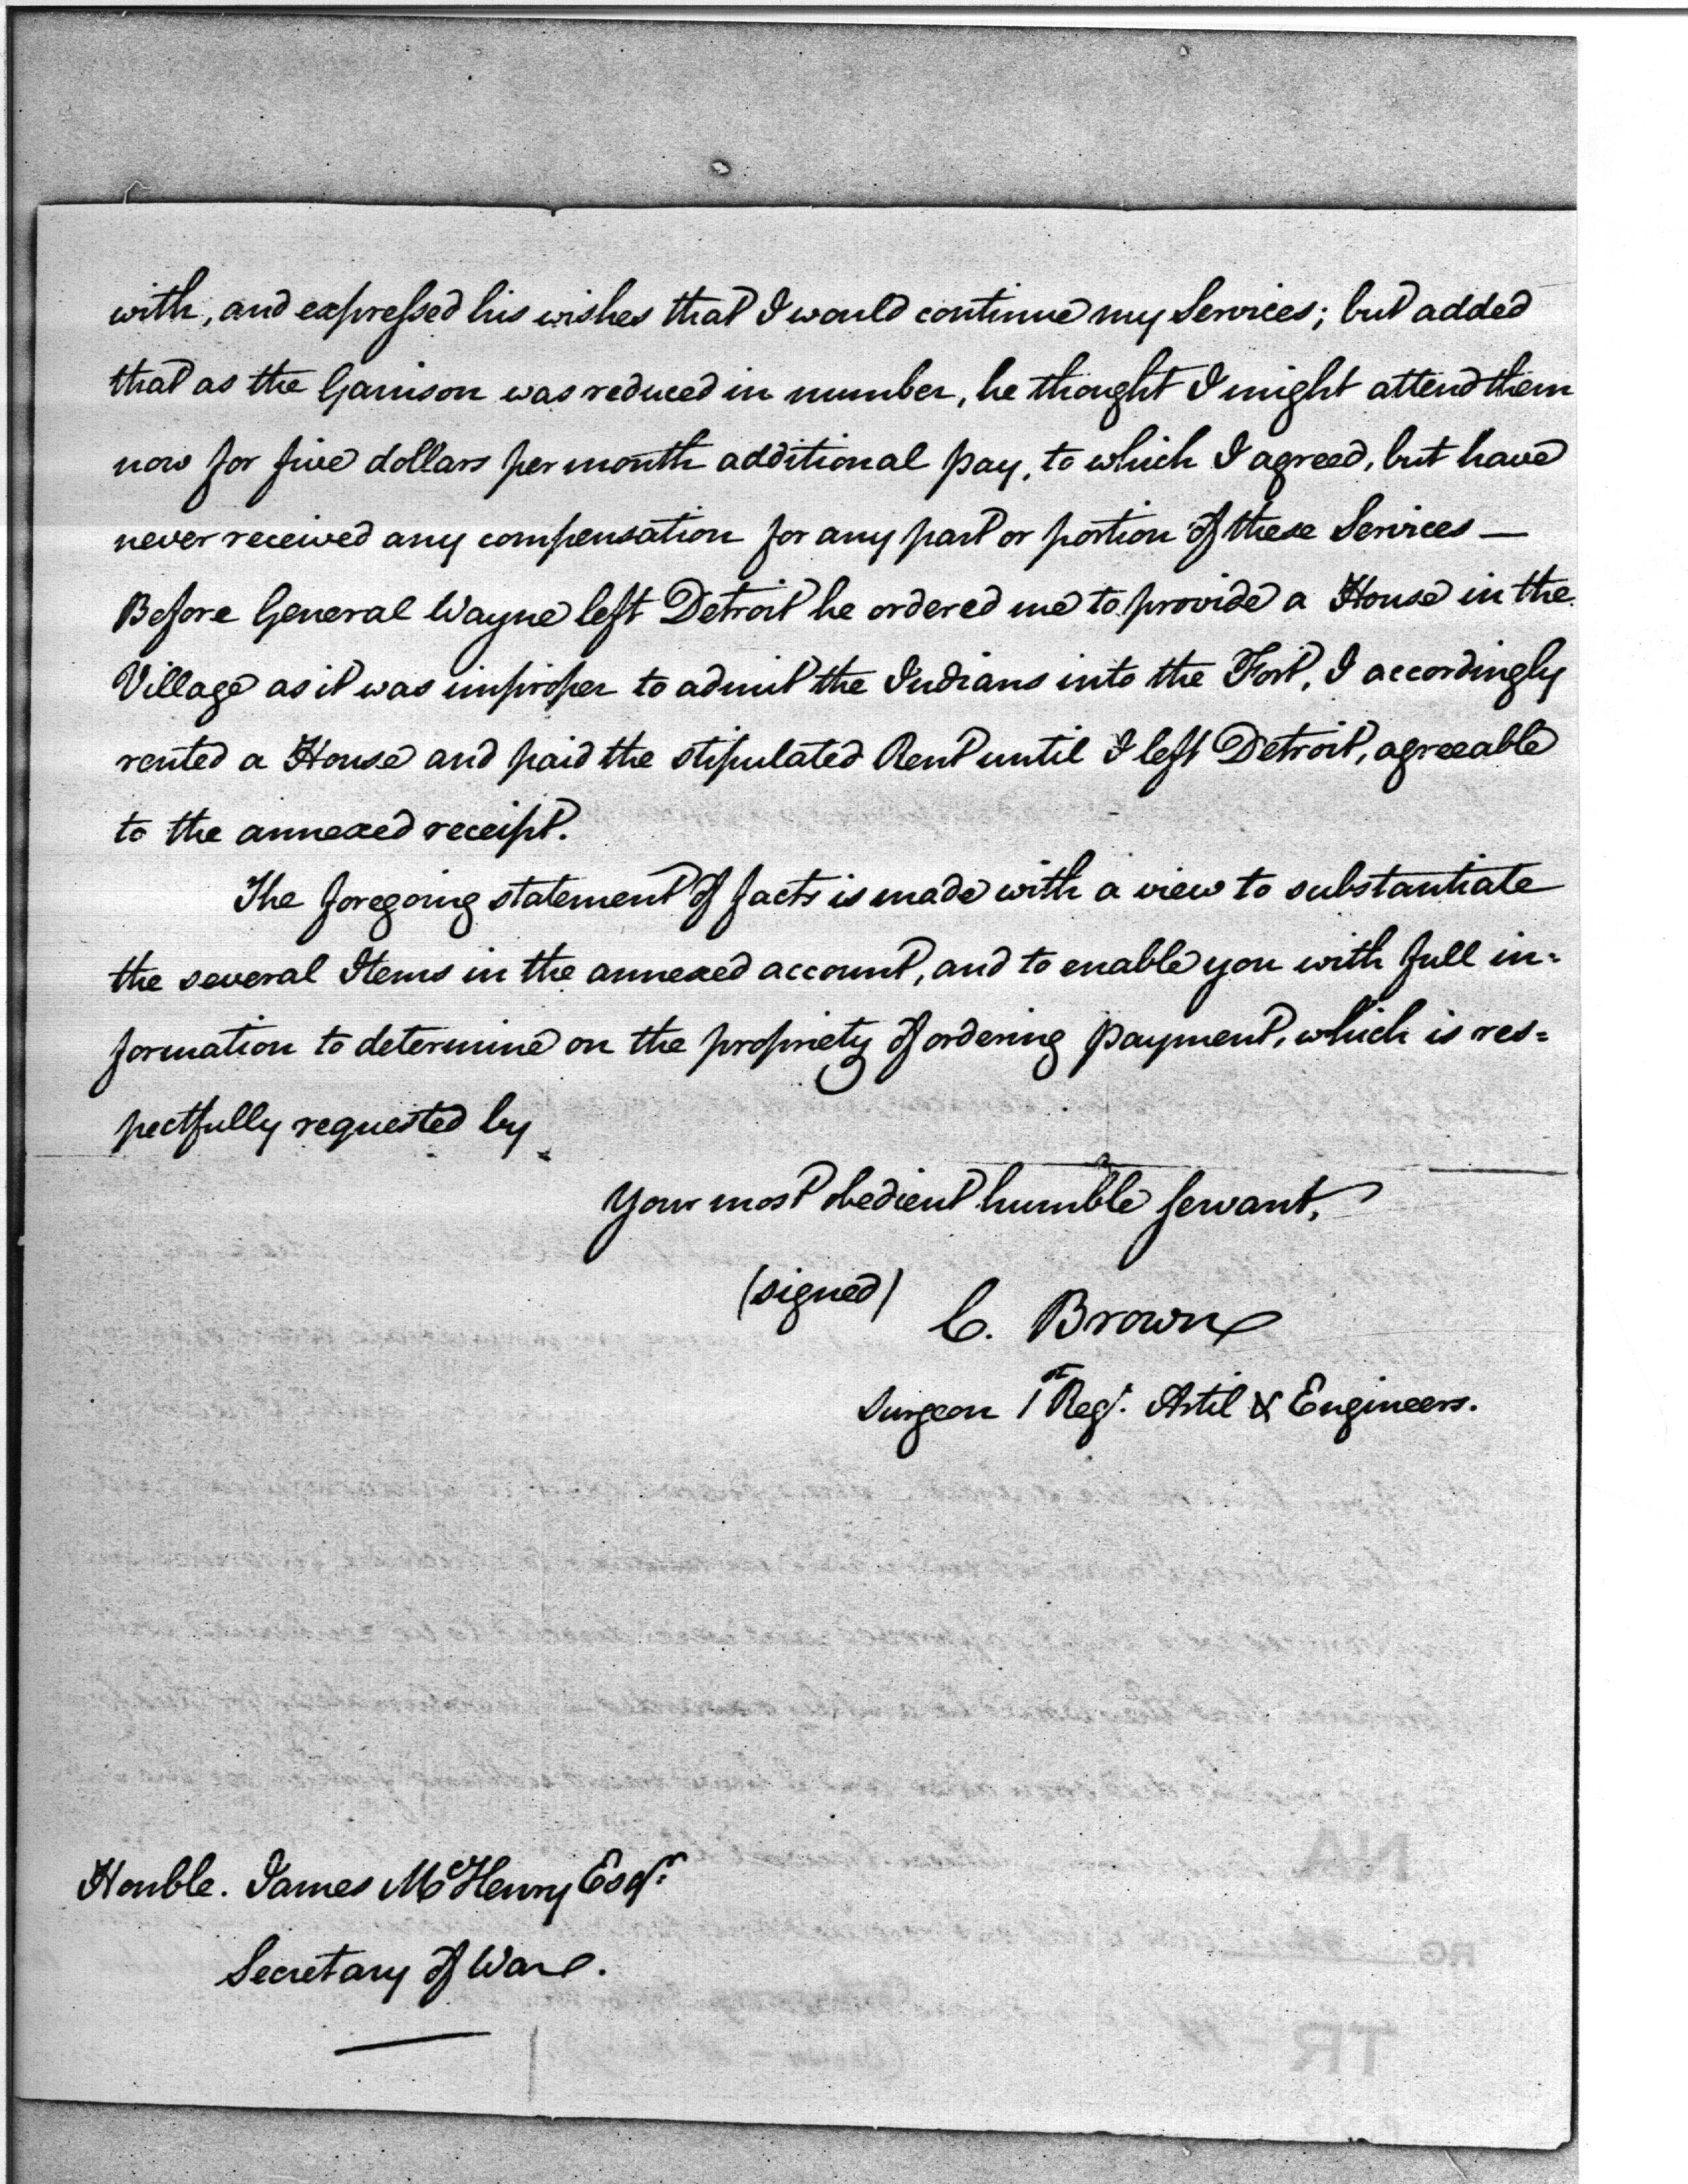 with, and expressed his wishes that I would continue my Services; but added
that as the Garrison was reduced in number, he thought I might attend them
now for five dollars per month additional pay, to which I agreed, but have
never received any compensation for any part or portion of these Services —
Before General Wayne left Detroit he ordered me to provide a House in the
Village as it was improper to admit the Indians into the Fort, I accordingly
rented a House and paid the stipulated Rent until I left Detroit, agreeable
to the annexed receipt.
The foregoing statement of facts is made with a view to substantiate
the several Items in the annexed account, and to enable you with full in=
formation to determine on the propriety of ordering payment, which is res=
pectfully requested by
Your most obedient humble servant,
(signed) C. Brown
Surgeon 1st Regt. Artil & Engineers.
Honble. James McHenry Esqr.
Secretary of War.
NA
RG
TR